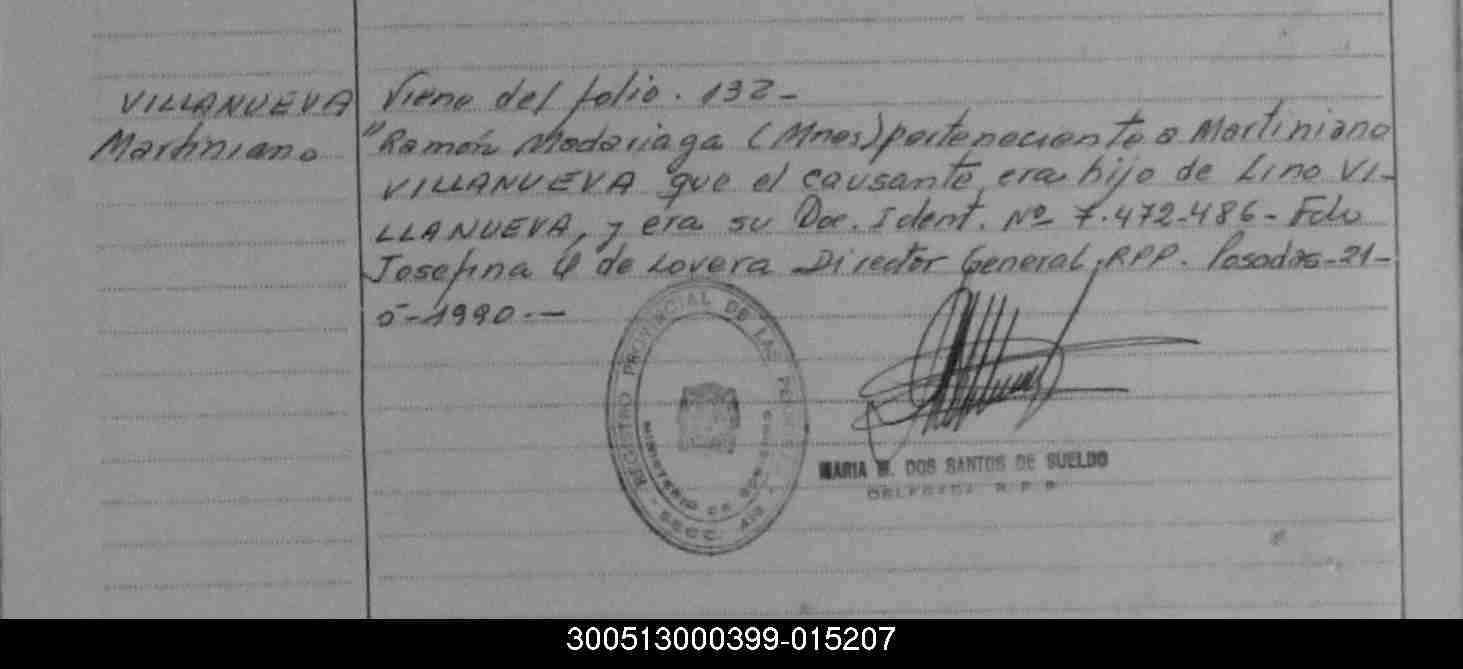 VILLANUEVA
Martiniano
Viene del folio. 132-
"Ramón Madariaga (Mnes) perteneciente a Martiniano
VILLANUEVA que el causante era hijo de Lino VI-
LLANUEVA, y era su Doc. Ident. Nº 7.472.486- Fdo
Josefina de Lovera Director General RPP. Posadas-21-
5-1990.-
REGISTRO PROVINCIAL DE LAS PERSONAS
MINISTERIO DE GOBIERNO
SECC.
MARIA DOS SANTOS DE SUELDO
DELEGADA R.P.P.
300513000399-015207